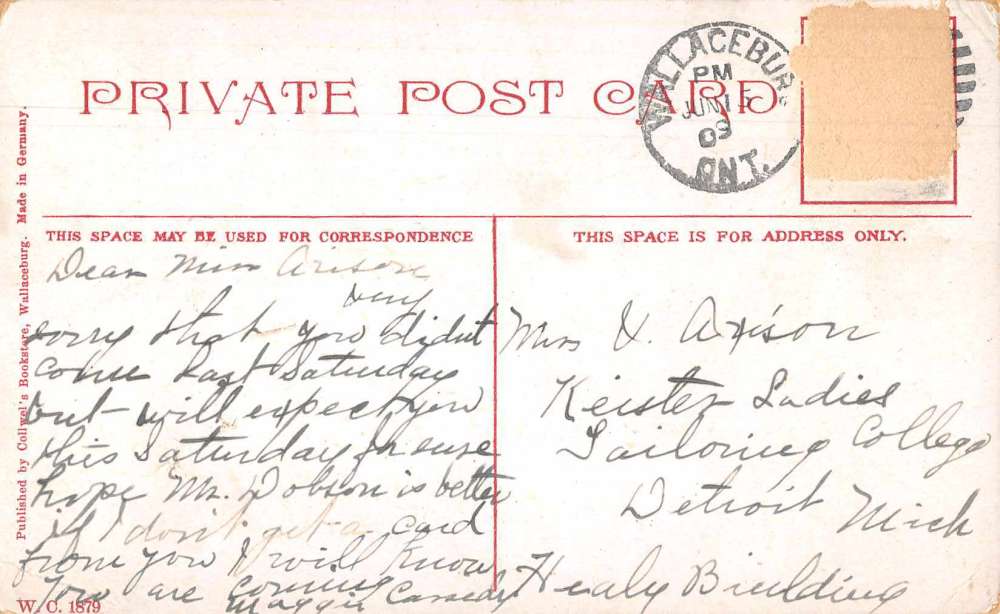 PRIVATE POST CARD
WALLACEBURG
PM
JUN 15
09
ONT.
THIS SPACE MAY BE USED FOR CORRESPONDENCE
THIS SPACE IS FOR ADDRESS ONLY.
Dear Miss Arison
very
sorry that you didnt
come last Saturday
but will expect you
this Saturday for sure
hope Mr. Dobson is better
if I don't get a card
from you I will know
You are coming
Maggie Cassedy
Miss V. Arison
Keister Ladies
Tailoring College
Detroit Mich
Healy Building
Published by Collwel's Bookstore, Wallaceburg. Made in Germany.
W. C. 1879